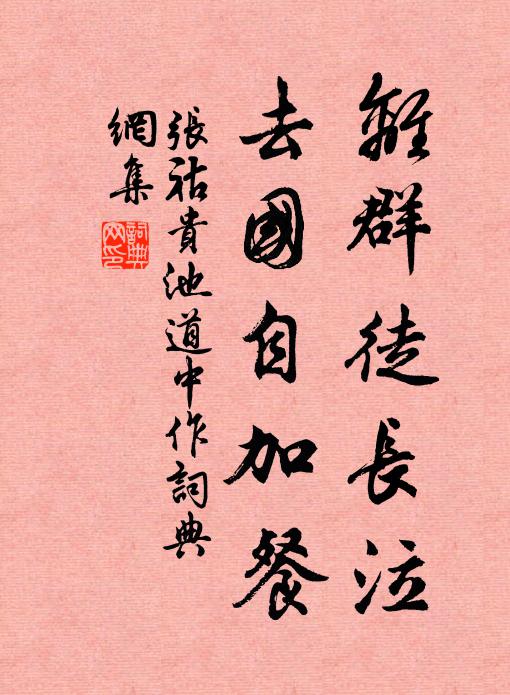 離群徒長泣
去國自加餐
張祜貴池道中作詞典
網集
詞典網印